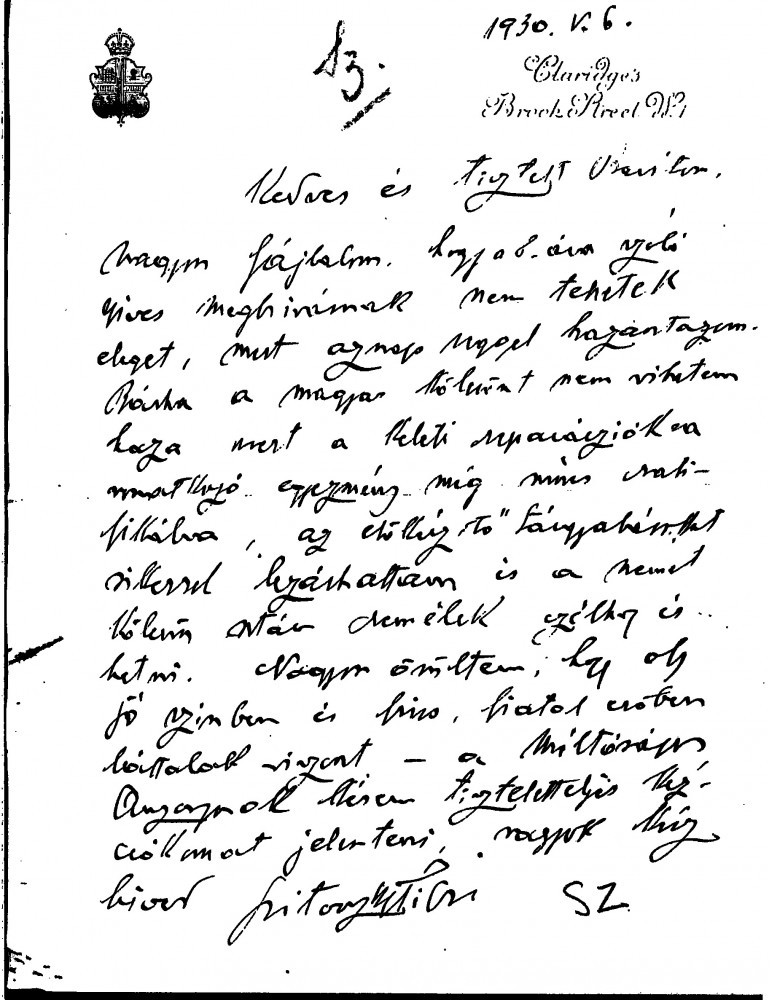 1930. V. 6.
Sz.
Claridge's
Brook Street W.1
Kedves és tisztelt Barátom,
nagyon fájlalom, hogy a 8.-ára szóló
szives meghivásnak nem tehetek
eleget, mert aznap reggel hazautazom.
Bárha a magyar kölcsönt nem vihetem
haza mert a keleti reparációkra
vonatkozó egyezmény még nincs rati-
fikálva, az előkészitő tárgyalásokat
sikerrel lezárhattam és a német
kölcsön után remélek célhoz ér-
hetni. Nagyon örültem, hogy oly
jó szinben és friss, fiatal erőben
láttalak viszont – a Méltóságos
Asszonynak kérem tiszteletteljes kéz-
csókomat jelenteni, vagyok kész
hived
SZ